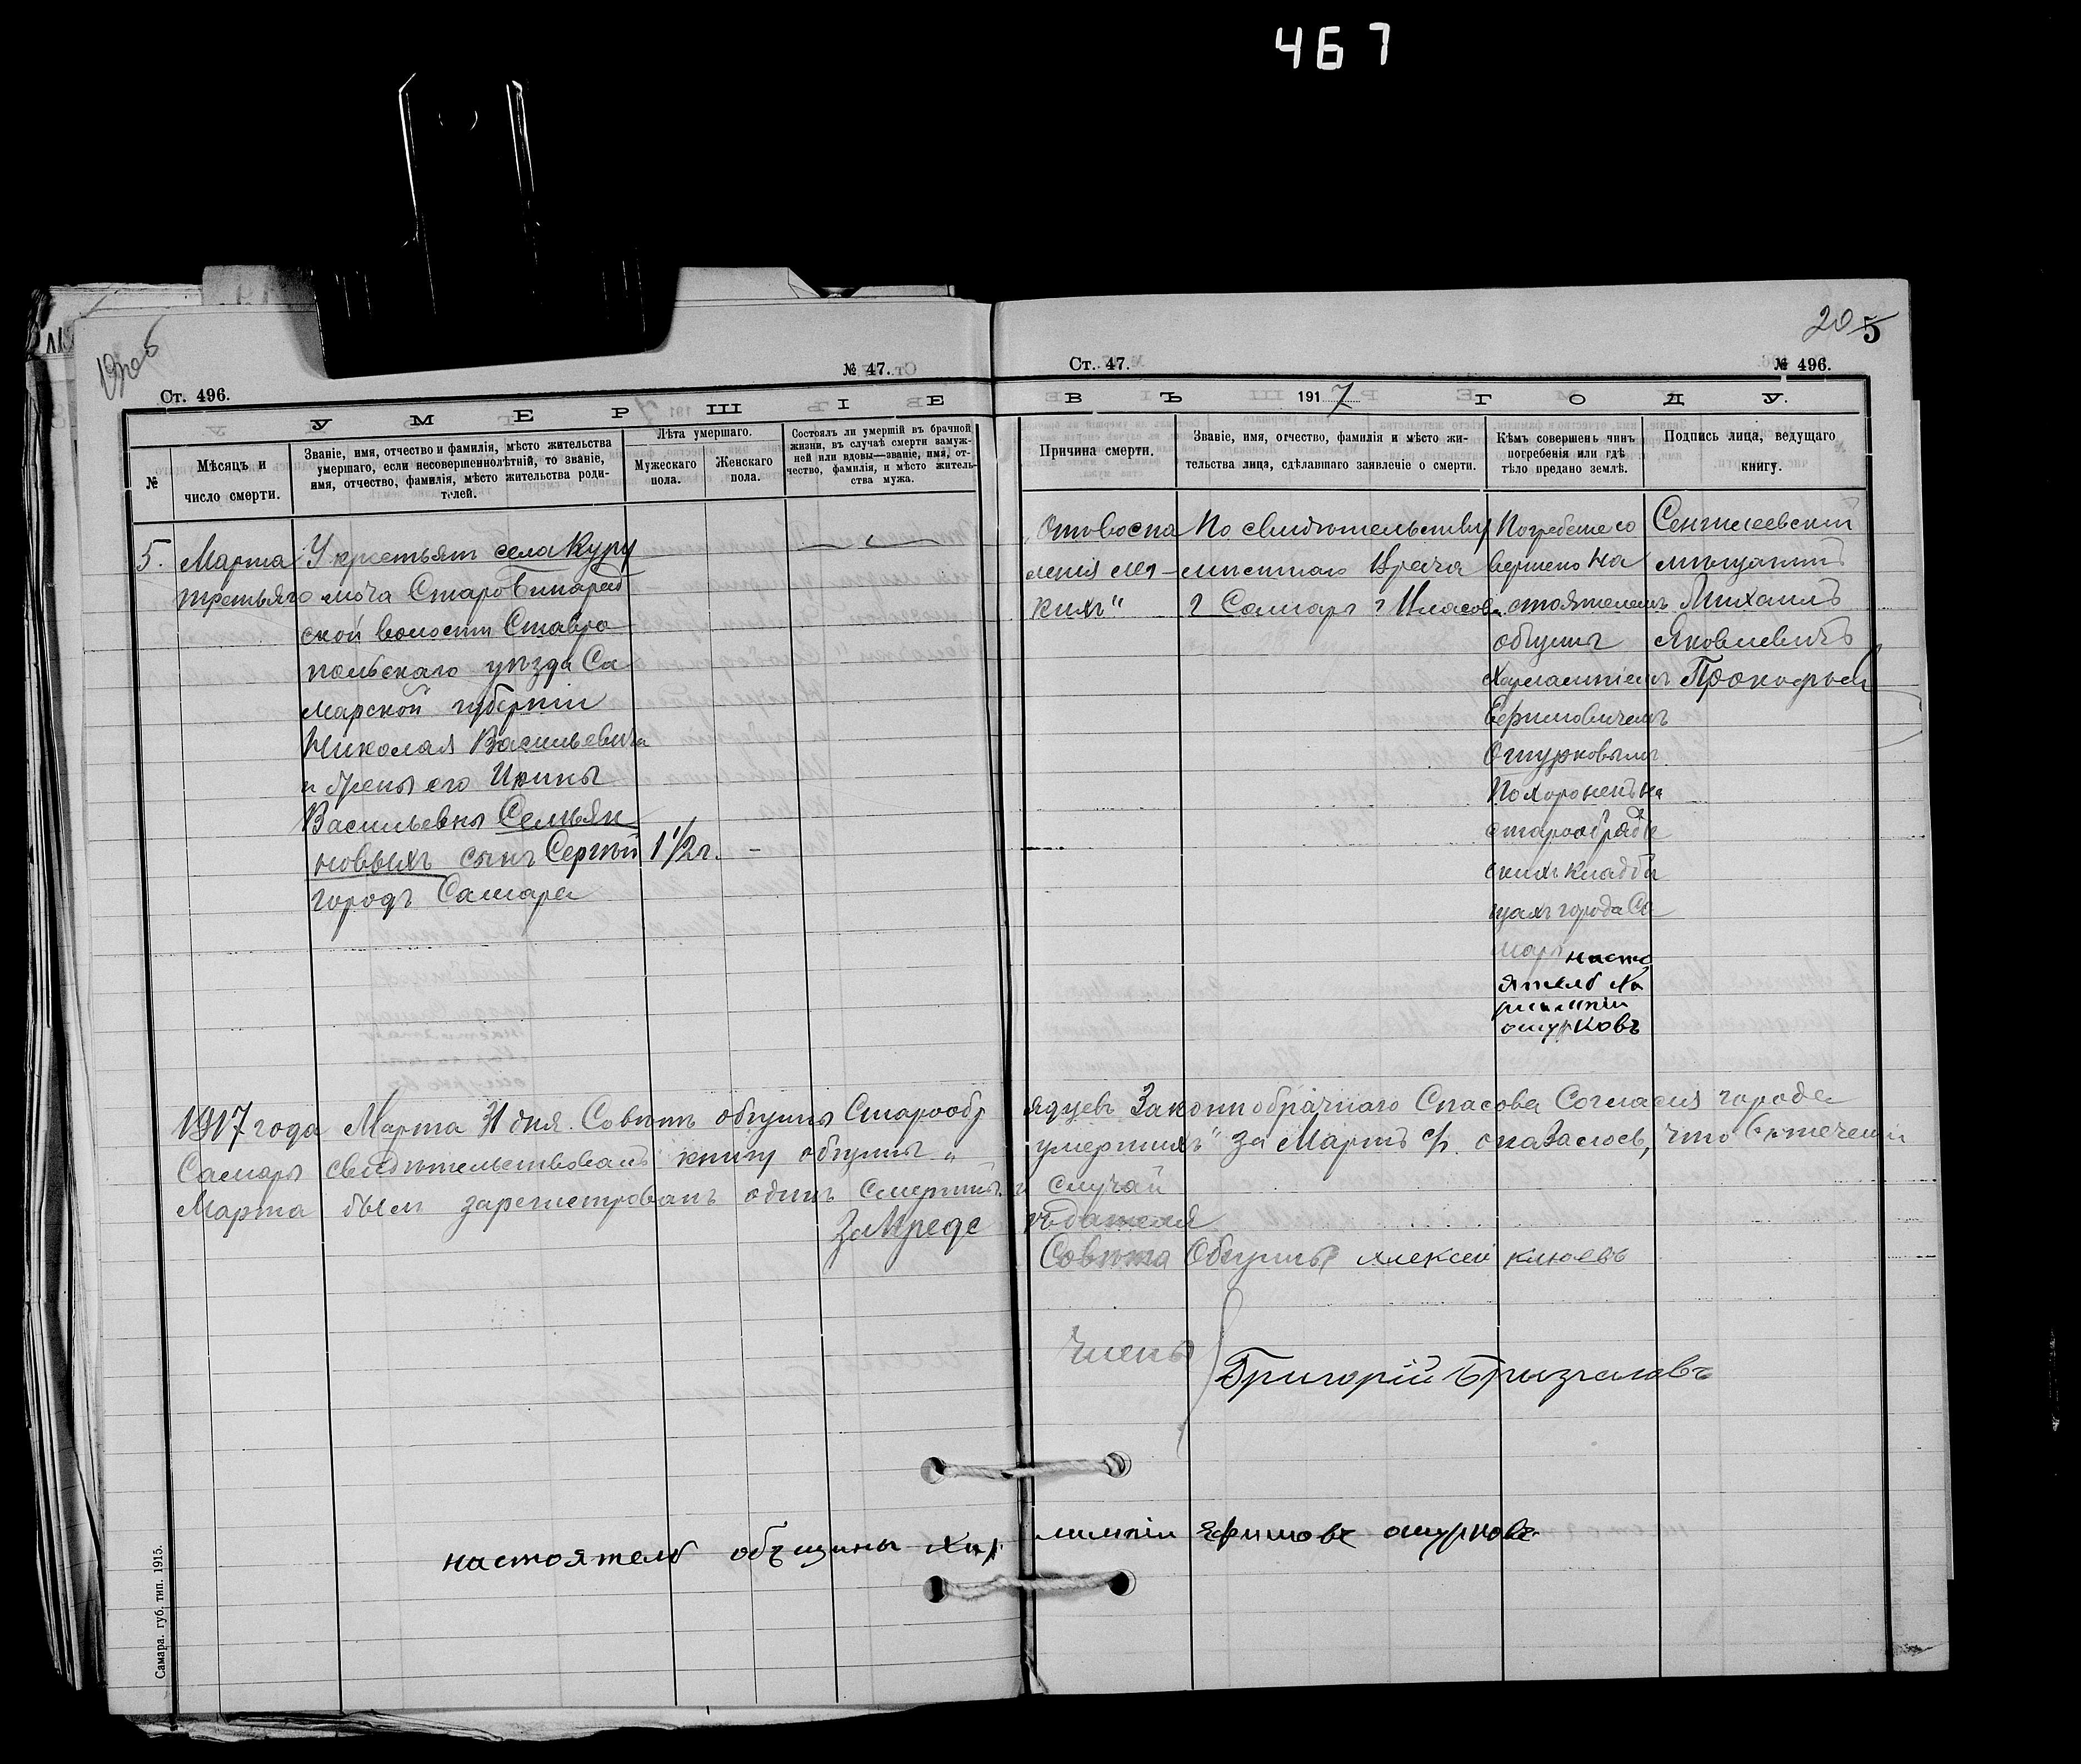 467
20 5
Ст. 496.
№ 47.
Ст. 47.
№ 496.
УМЕРШІЕ
ВЪ 1917 ГОДУ.
№
Мѣсяцъ и
число смерти.
Званіе, имя, отчество и фамилія, мѣсто жительства
умершаго, если несовершеннолѣтній, то званіе,
имя, отчество, фамилія, мѣсто жительства роди-
телей.
Лѣта умершаго.
Мужескаго
пола.
Женскаго
пола.
Состоялъ ли умершій въ брачной
жизни, въ случаѣ смерти замуж-
ней или вдовы—званіе, имя, от-
чество, фамилія, и мѣсто житель-
ства мужа.
Причина смерти.
Званіе, имя, отчество, фамилія и мѣсто жи-
тельства лица, сдѣлавшаго заявленіе о смерти.
Кѣмъ совершенъ чинъ
погребенія или гдѣ
тѣло предано землѣ.
Подпись лица, ведущаго
книгу.
5.
Марта
третьяго
У крестьян села Куру
моча Старо Бинарад
ской волости Ставро
польскаго уѣзда Са
марской губерніи
Николая Васильевича
и жены его Ирины
Васильевны Семьян
новыхъ сынъ Сергѣй
городъ Самара
1 1/2 г.
-
„Отъ воспа
ленія лег-
кихъ"
По свидѣтельству
мѣстнаго Врача
г Самары г Власова
Погребеніе со
вершено на
стоятелемъ
общины
Харлампіемъ
Ефимовичемъ
Ошурковымъ
Похороненъ на
старообрядче
скихъ кладби
щахъ города Са
мары
насто
ятель Ха
рлампіи
ошурковъ
Сенгилеевскій
мѣщанинъ
Михаилъ
Яковлевичъ
Прокофьев
1917 года Марта 31 дня. Совѣтъ общины Старообр ядцевъ Законнобрачнаго Спасова Согласія города
Самары свидѣтельствовалъ книгу общины „ умершихъ" за Мартъ с/г. оказалось, что в теченіи
Марта былъ зарегистрованъ одинъ Смертный случай
За Предсѣдателя
Совѣта Общины Алексей клюевъ
Члены
Григорій Брызгаловъ
настоятель объщины Харлампіи Ефимовъ ошурковъ
Самара. губ. тип. 1915.